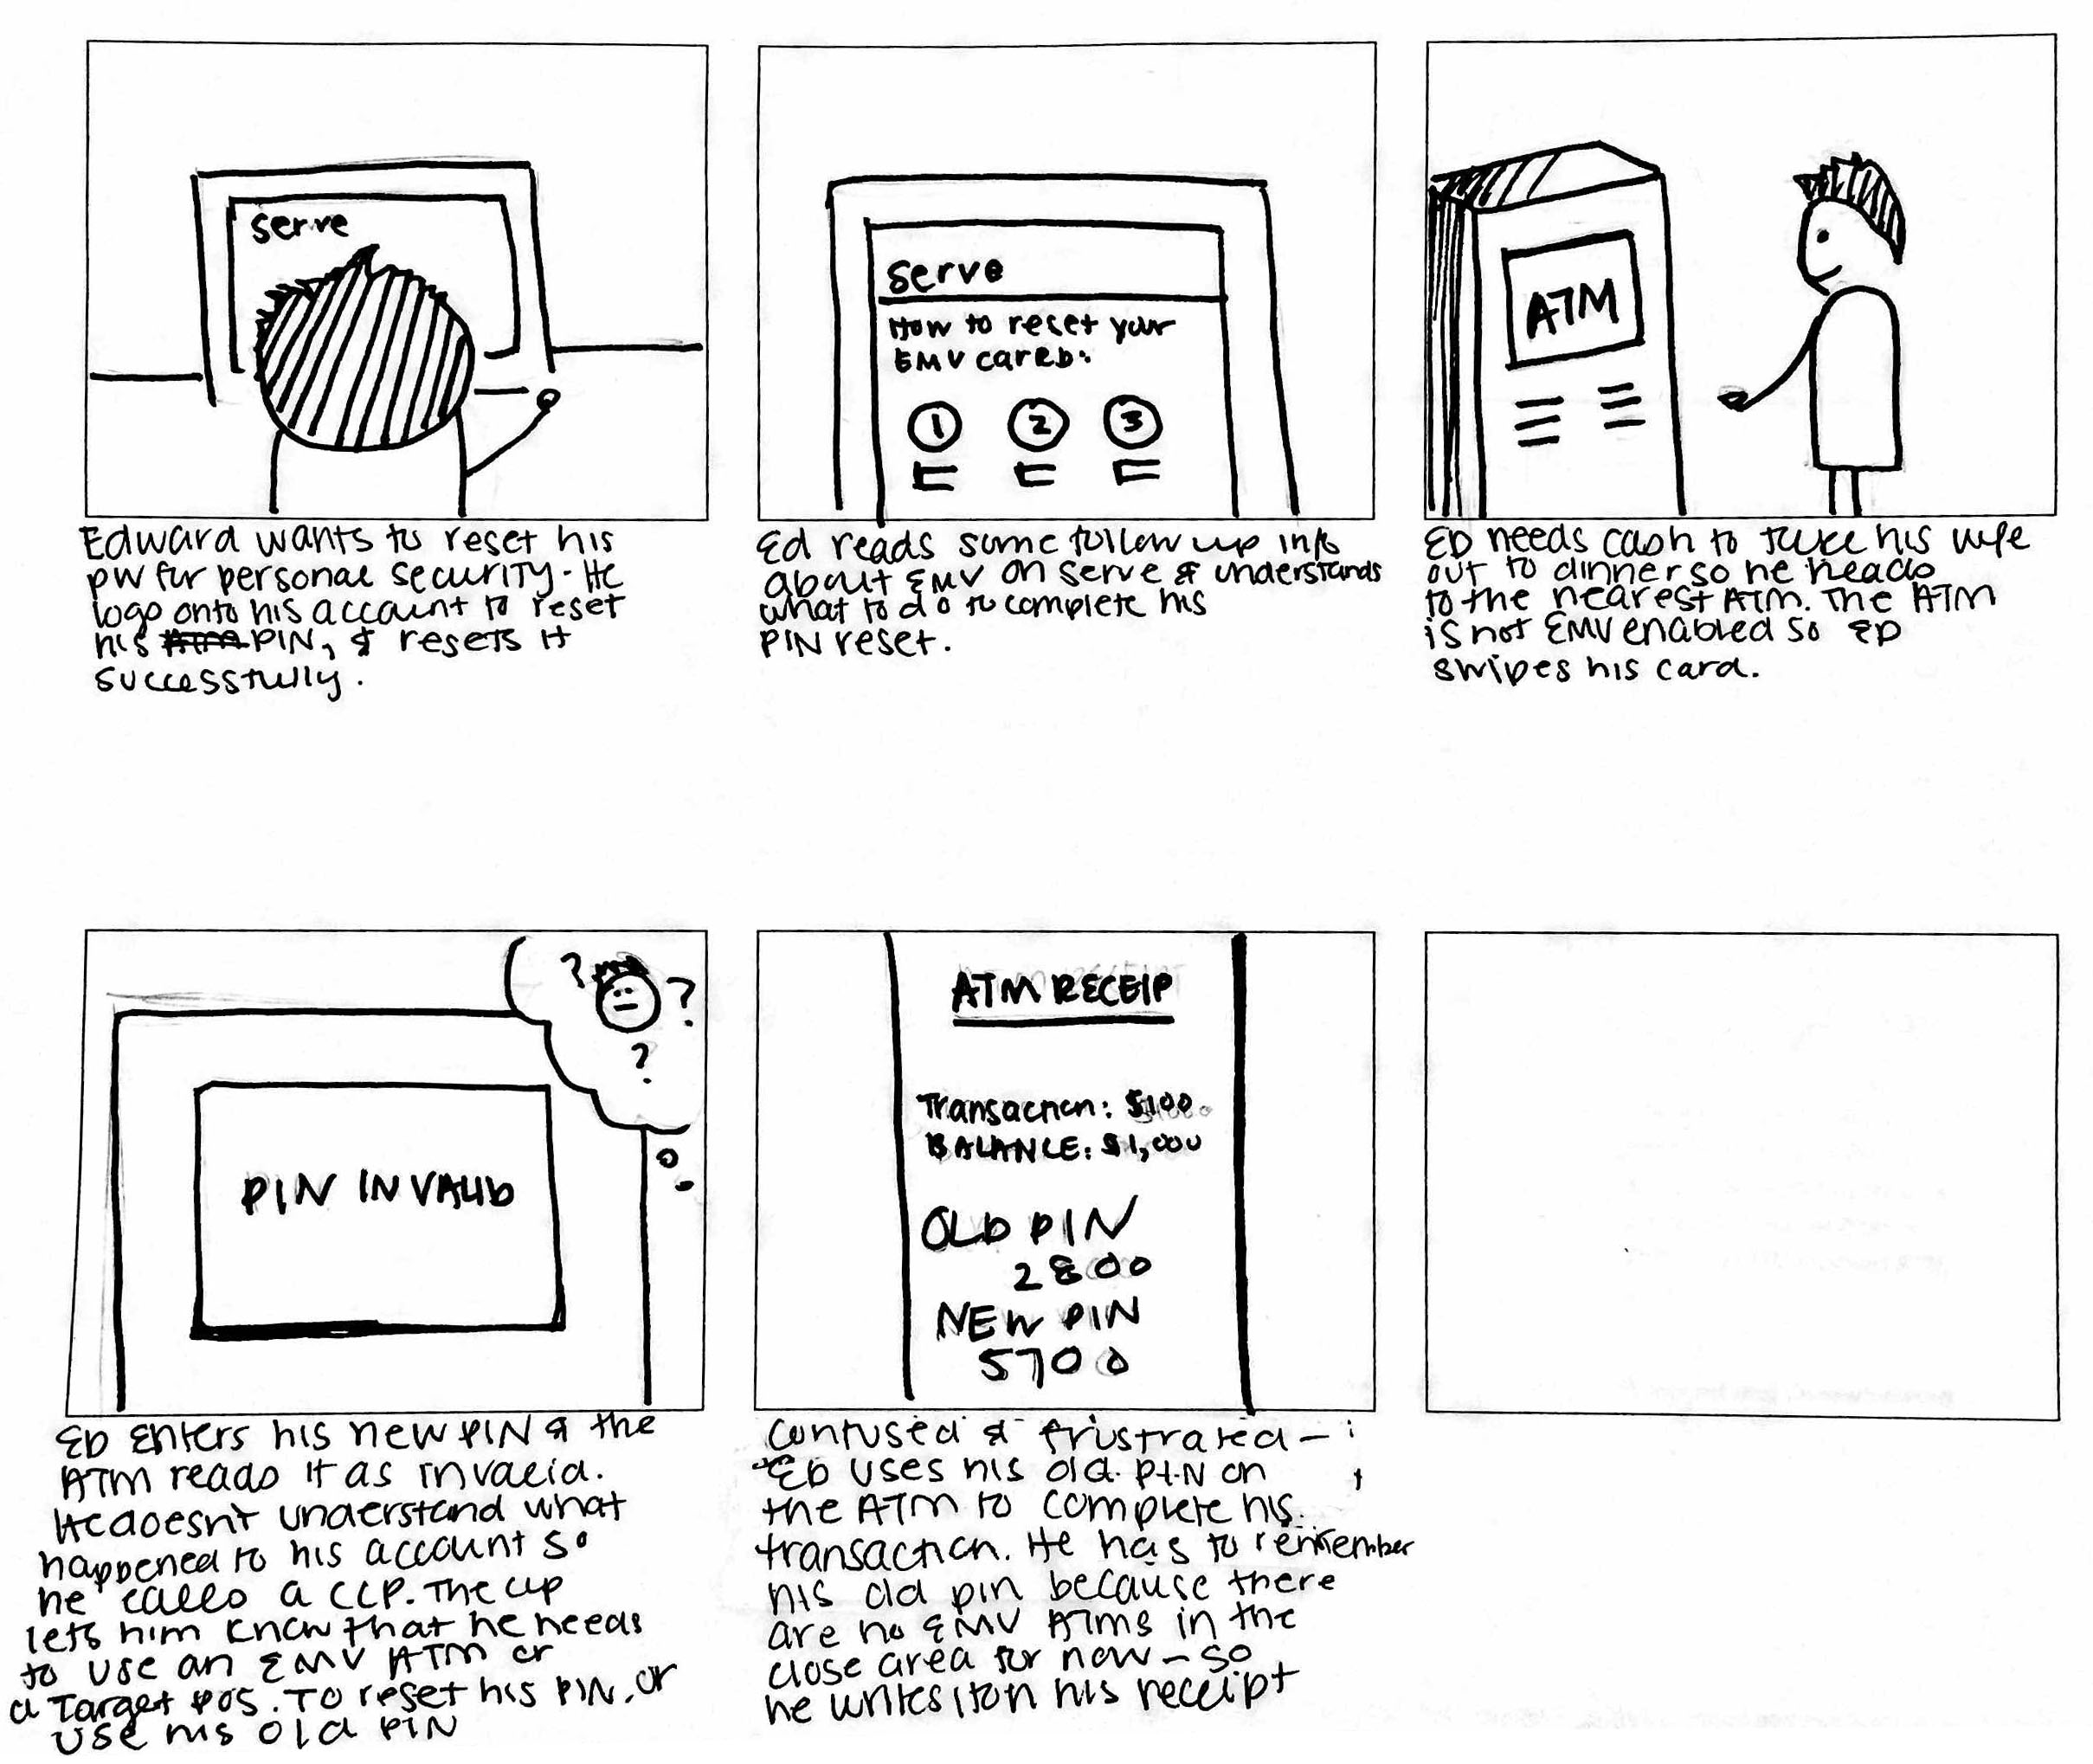 serve
Edward wants to reset his
pw for personal security. He
logs onto his account to reset
his ATM PIN, & resets it
successfully.
serve
How to reset your
EMV careb:
1 2 3
Ed reads some follow up info
about EMV on serve & understands
what to do to complete his
PIN reset.
ATM
ED needs cash to take his wife
out to dinner so he heads
to the nearest ATM. The ATM
is not EMV enabled so ED
swipes his card.
? ?
?
PIN INVALID
ED Enters his new PIN & the
ATM reads it as invalid.
He doesn't understand what
happened to his account so
he calls a CCP. The ccp
lets him know that he needs
to use an EMV ATM or
a Target POS. To reset his PIN, or
use his old PIN
ATM RECEIP
Transaction: $100.
BALANCE: $1,000
OLD PIN
2800
NEW PIN
5700
Confused & frustrated –
ED uses his old PIN on
the ATM to complete his
transaction. He has to remember
his old pin because there
are no EMV ATMs in the
close area for now – so
he writes it on his receipt